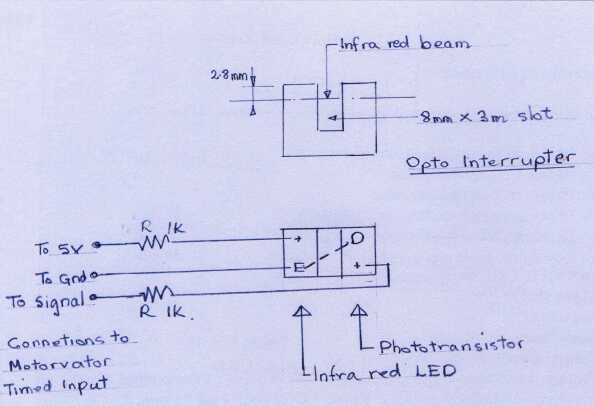 Infra red beam
2.8mm
8mm x 3m slot
Opto Interrupter
R 1K
To 5V
+ D
To Gnd
E +
To Signal
R 1K.
Connetions to
Motorvator
Timed Input
Phototransistor
Infra red LED